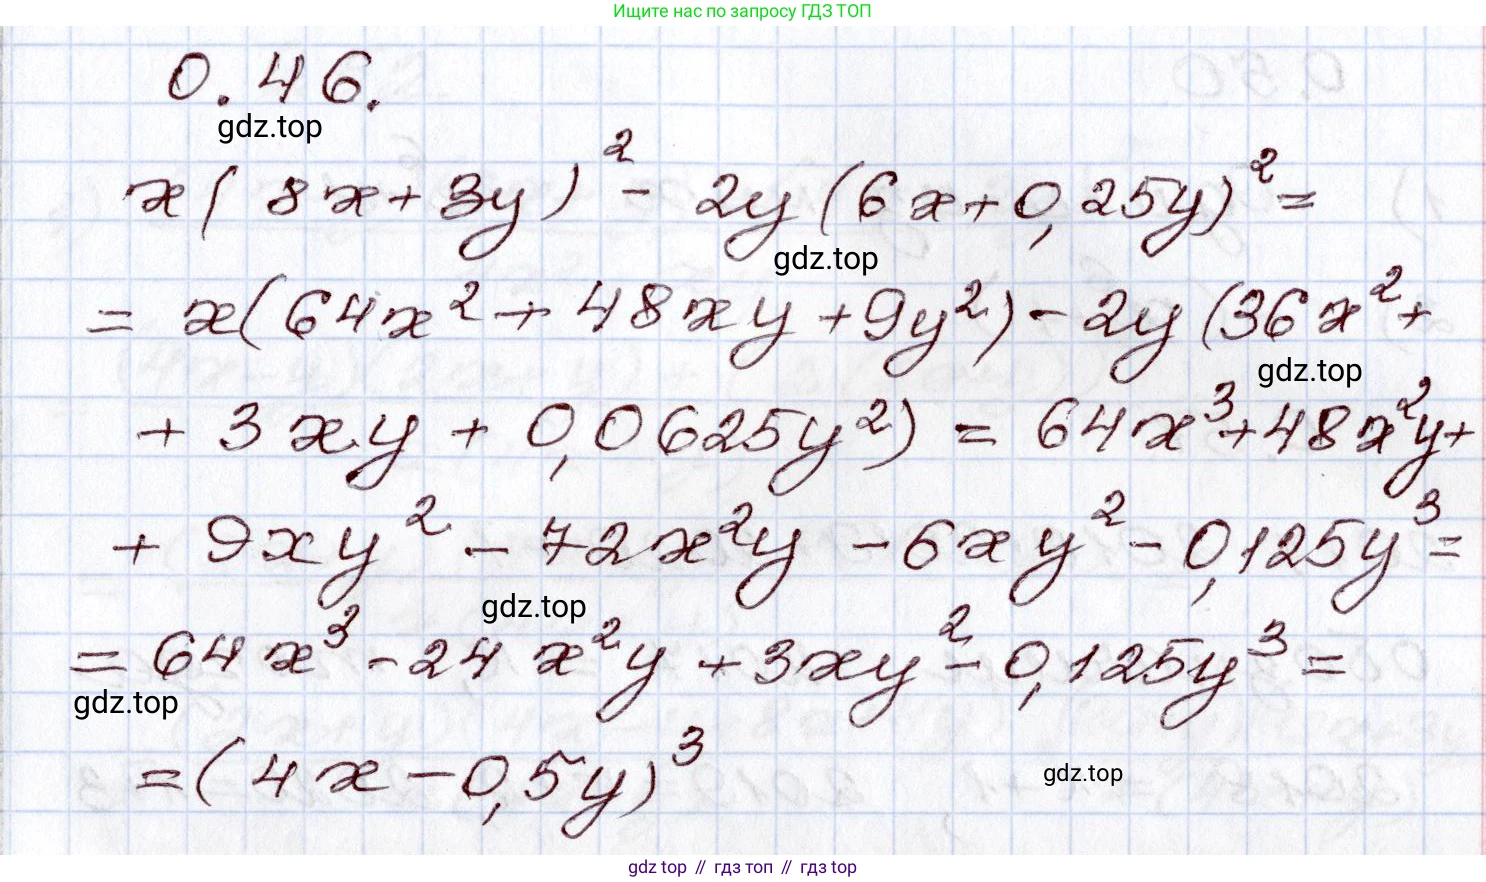 Ищите нас по запросу ГДЗ ТОП
0.46.
gdz.top
x(8x+3y)² - 2y(6x+0,25y)² =
gdz.top
= x(64x² + 48xy + 9y²) - 2y(36x² +
gdz.top
+ 3xy + 0,0625y²) = 64x³ + 48x²y +
+ 9xy² - 72x²y - 6xy² - 0,125y³ =
gdz.top
= 64x³ - 24x²y + 3xy² - 0,125y³ =
gdz.top
= (4x - 0,5y)³
gdz.top
gdz top // гдз топ // гдз.top